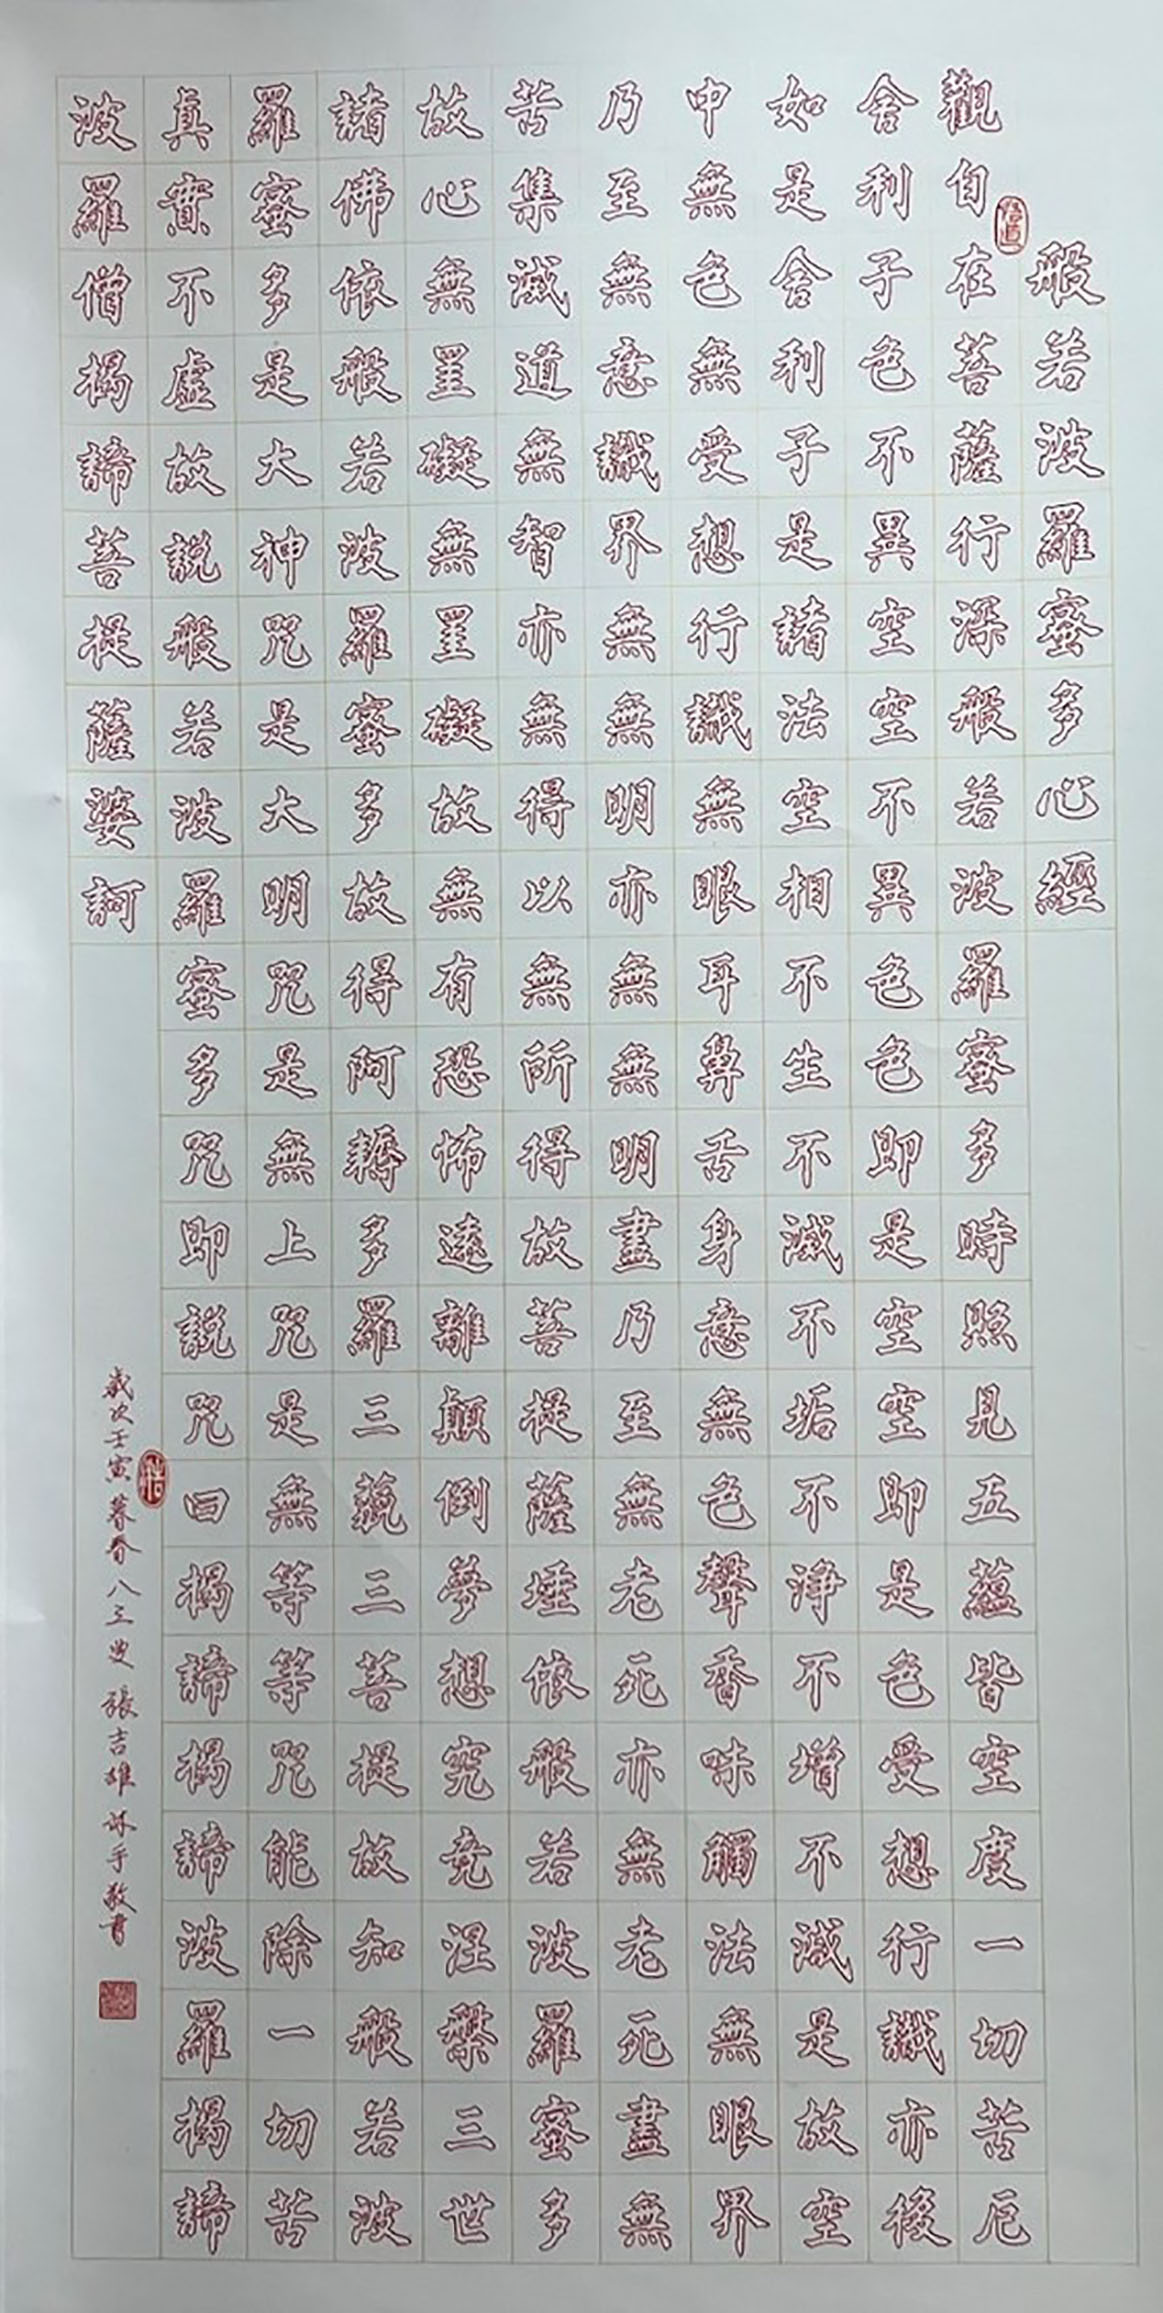 般若波羅蜜多心經
觀自在菩薩行深般若波羅蜜多時照見五蘊皆空度一切苦厄
舍利子色不異空空不異色色即是空空即是色受想行識亦復
如是舍利子是諸法空相不生不滅不垢不淨不增不減是故空
中無色無受想行識無眼耳鼻舌身意無色聲香味觸法無眼界
乃至無意識界無無明亦無無明盡乃至無老死亦無老死盡無
苦集滅道無智亦無得以無所得故菩提薩埵依般若波羅蜜多
故心無罣礙無罣礙故無有恐怖遠離顛倒夢想究竟涅槃三世
諸佛依般若波羅蜜多故得阿耨多羅三藐三菩提故知般若波
羅蜜多是大神咒是大明咒是無上咒是無等等咒能除一切苦
真實不虛故說般若波羅蜜多咒即說咒曰揭諦揭諦波羅揭諦
波羅僧揭諦菩提薩婆訶
歲次壬寅暮春八三叟張吉雄沐手敬書